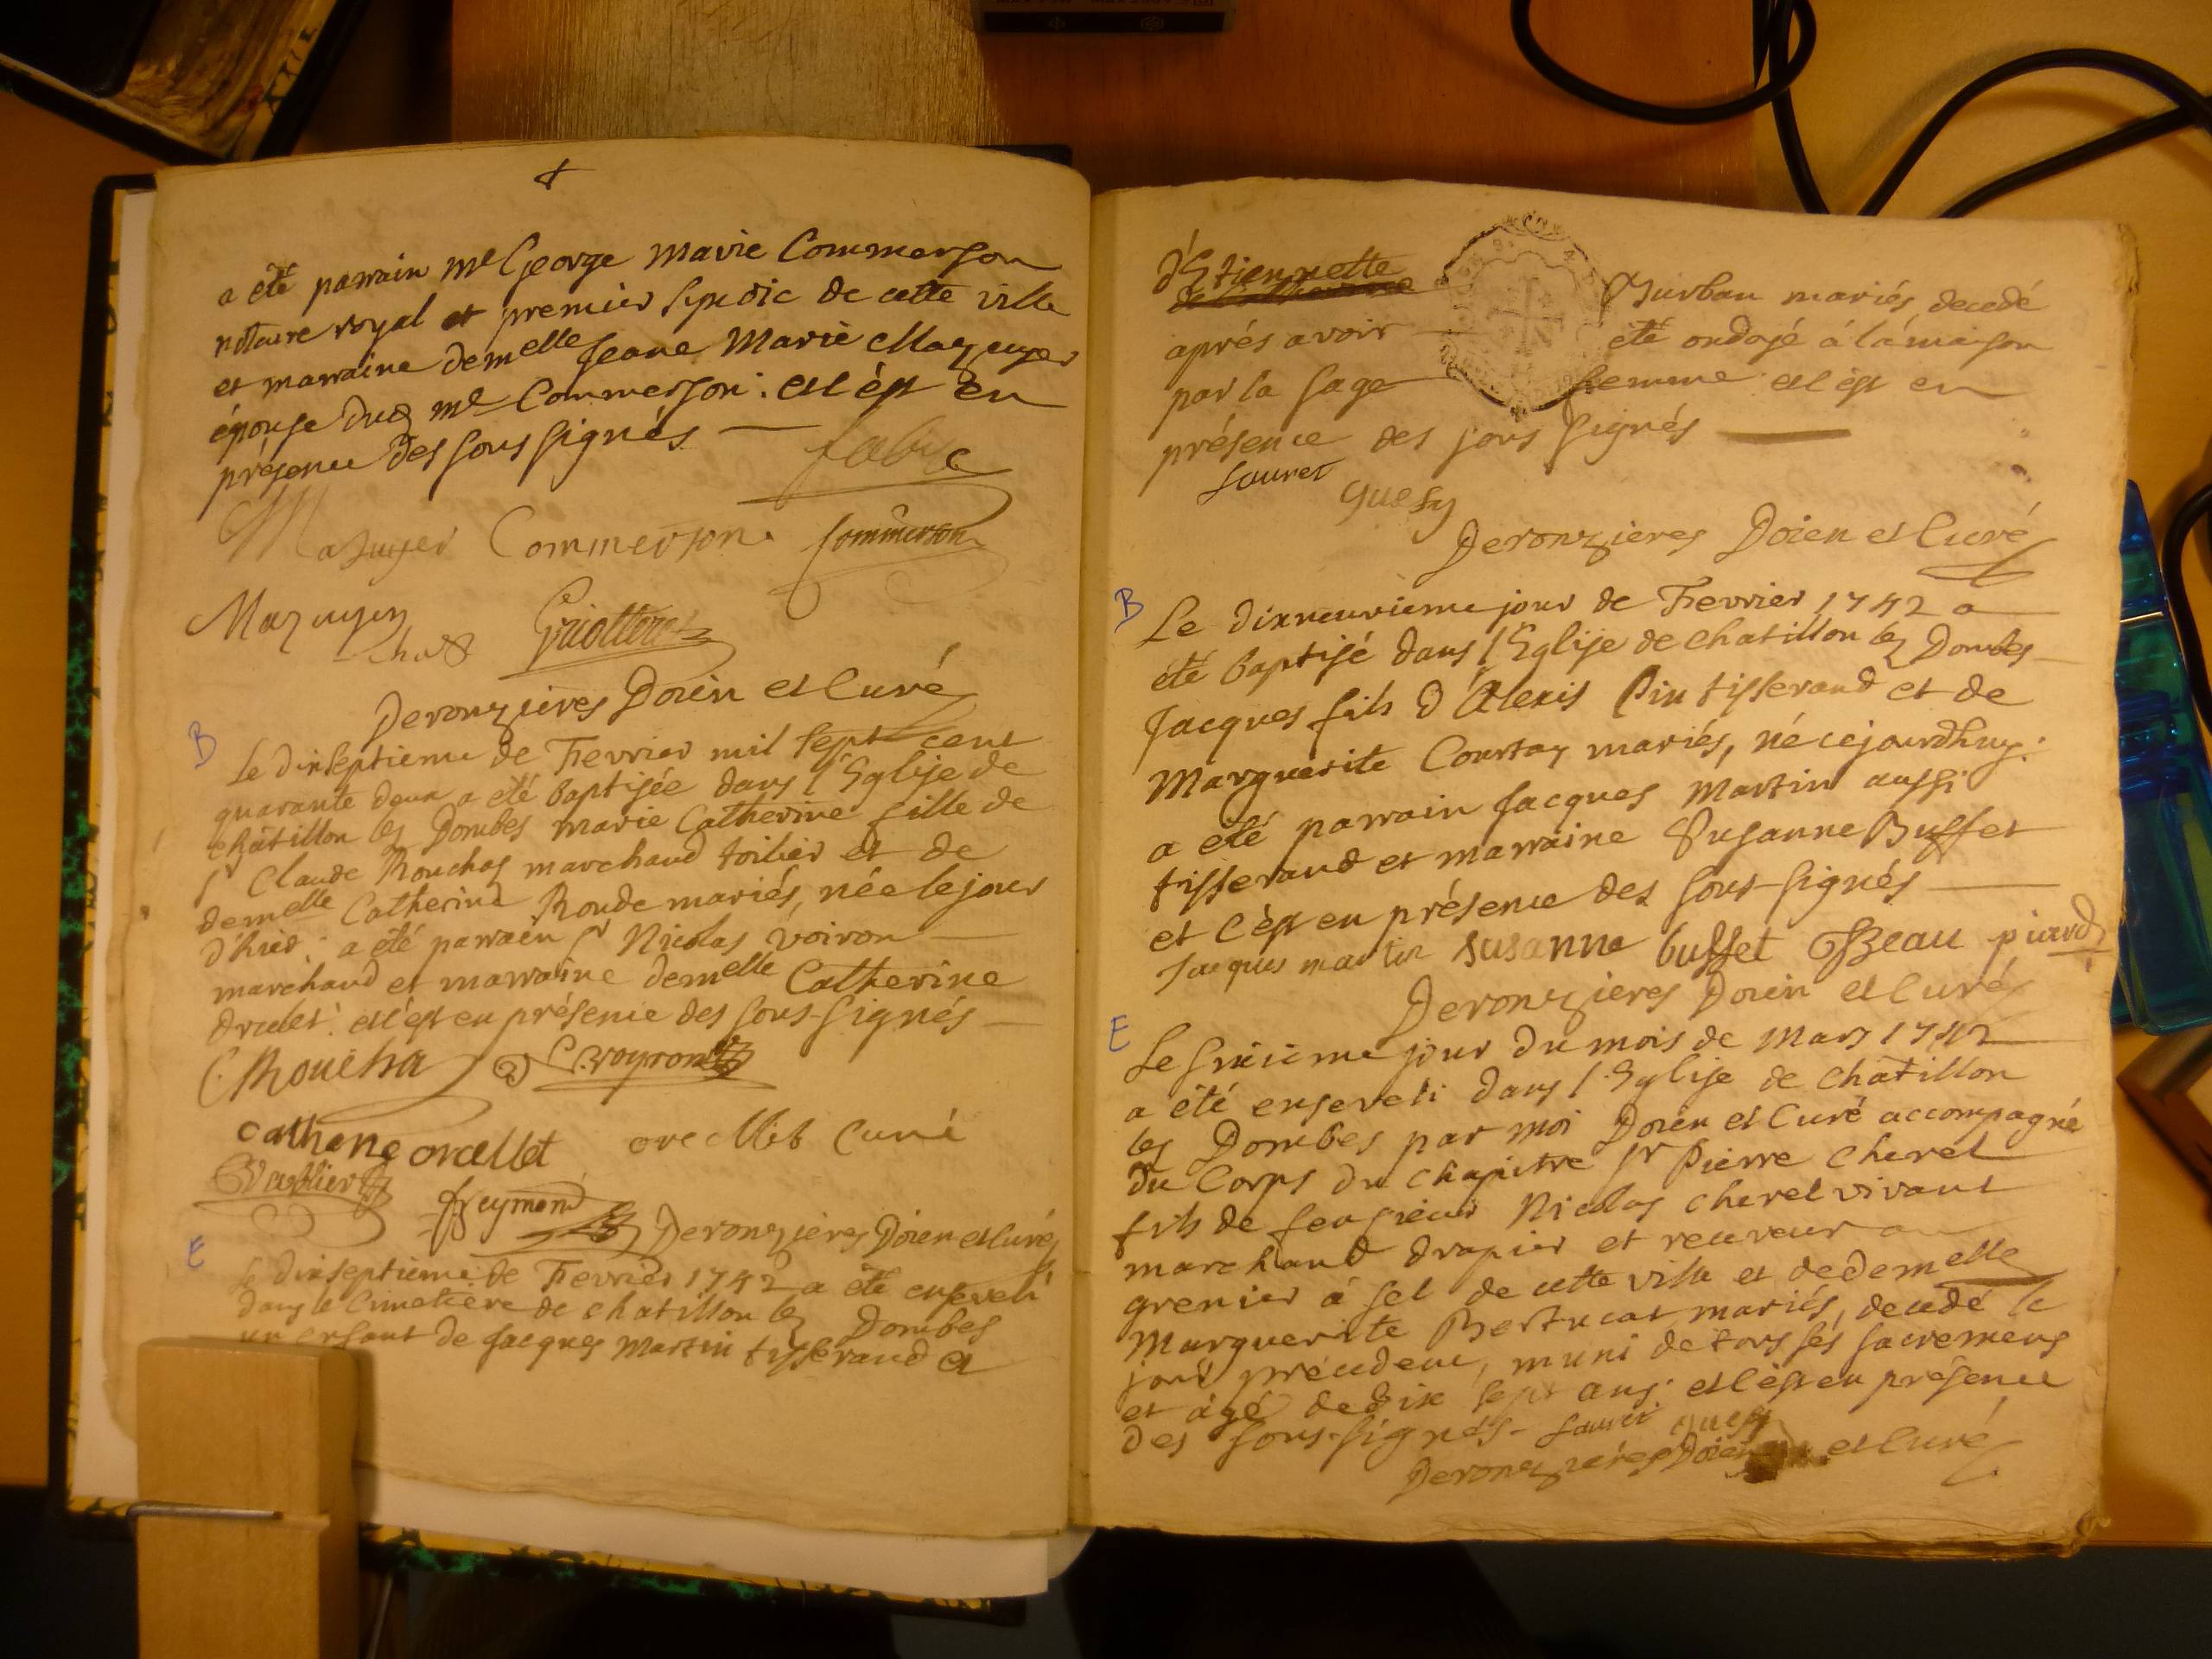 a été parrain me George Marie Commerson
notaire royal et premier sindic de cette ville
et marraine demelle Jeane Marie Mazuyer
épouse dud me Commerson. et c'est en
présence des sous signés
fabre
Mazuyer Commerson Commerson
Mazuyer
Deronzieres Doien et Curé
B
Le dixseptieme de Fevrier mil sept cent
quarante deux a été baptisée dans l'Eglise de
châtillon les Dombes marie Catherine fille de
sr Claude Rouchas marchand toilier et de
demelle Catherine Ronde mariés, née le jour
d'hier: a été parrain sr Nicolas voiron
marchand et marraine demelle Catherine
et c'est en présence des sous-signés
C Roucha C. voyron
catherine orcellet Curé
Reymond
Deronzieres Doien et Curé
E
Le dixseptieme de Fevrier 1742 a été enseveli
dans le Cimetière de chatillon les Dombes
un enfant de Jacques Martin tisserand et
d'Etiennette Burban mariés, decedé
aprés avoir été ondoyé à la maison
par la sage femme et c'est en
présence des sous signés
Sauret
guesy
Deronzieres Doien et Curé
B
Le dixneuvieme jour de Fevrier 1742 a
été baptisé dans l'Eglise de chatillon les Dombes
Jacques fils d'Alexis Pin tisserand et de
Marguerite Courtay mariés, né cejourdhuy:
a été parrain Jacques Martin aussi
tisserand et marraine Susanne Buffet
et c'est en présence des sous-signés
Jacques martin susanne buffet Ozeau piard
Deronzieres Doien et Curé
E
Le sixieme jour du mois de Mars 1742
a été enseveli dans l'Eglise de châtillon
les Dombes par moi Doien et Curé accompagné
du Corps du chapitre sr Pierre Cherel
fils de feu sieur Nicolas Cherel vivant
marchand drapier et receveur au
grenier à sel de cette ville et de demelle
Marguerite Bertucat mariés, decedé le
jour précedent, muni de tous ses sacremens
et âgé de dix sept ans: et c'est en présence
des sous-signés- Sauret guesy
Deronzieres Doien et Curé